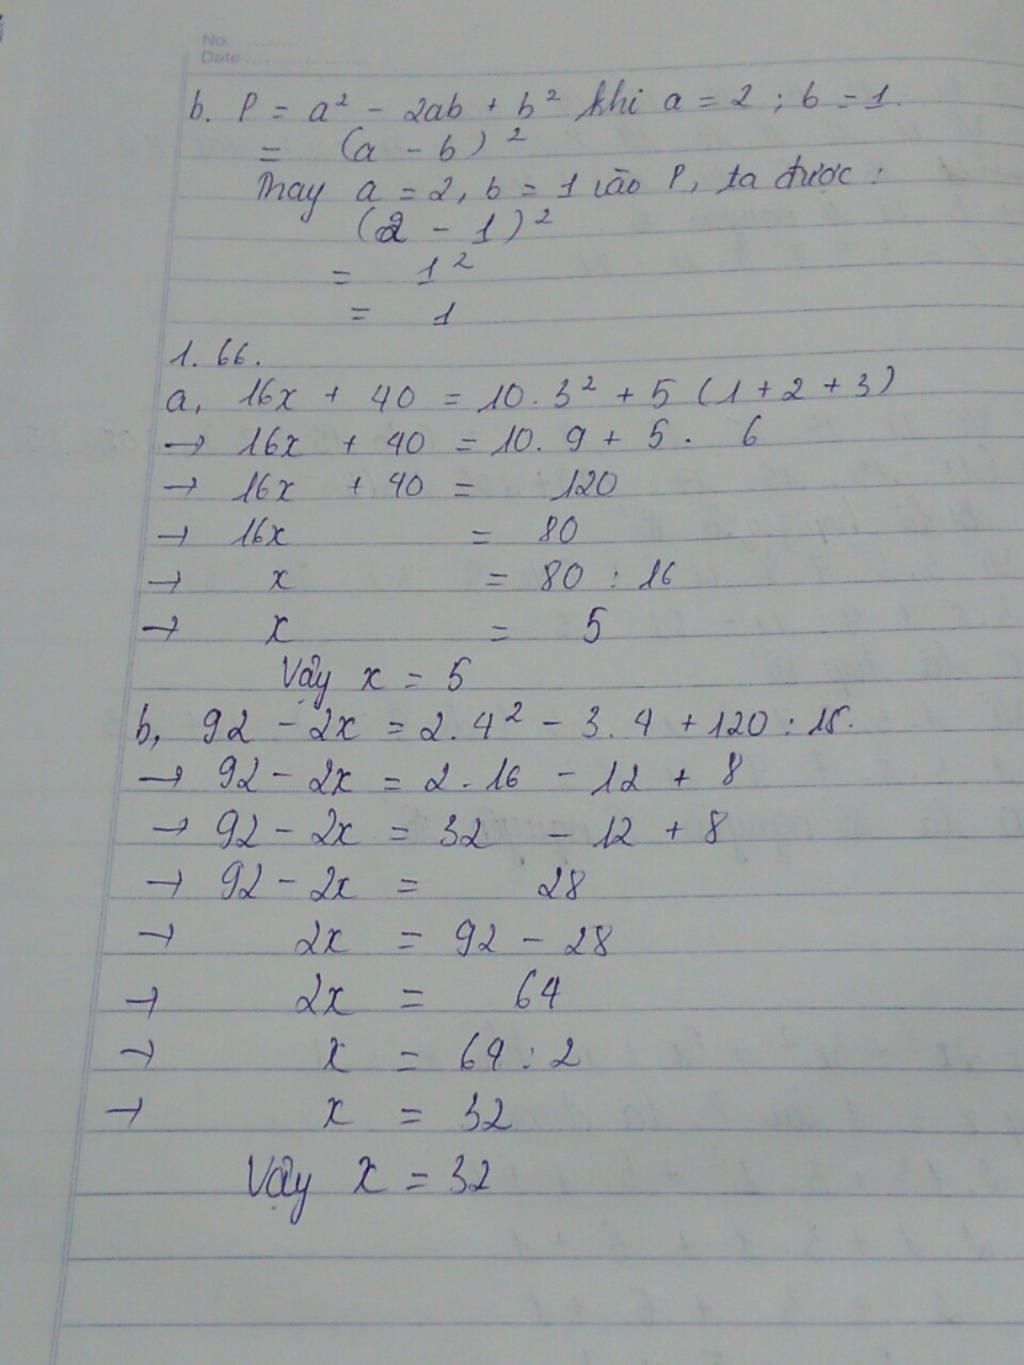 No. ............
Date ....................
b. P = a² - 2ab + b² khi a = 2 ; b = 1.
= (a - b)²
Thay a = 2, b = 1 vào P, ta được :
(2 - 1)²
= 1²
= 1
1. 66.
a, 16x + 40 = 10. 3² + 5 (1 + 2 + 3)
→ 16x + 40 = 10. 9 + 5 . 6
→ 16x + 40 = 120
→ 16x = 80
→ x = 80 : 16
→ x = 5
Vậy x = 5
b, 92 - 2x = 2. 4² - 3. 4 + 120 : 15.
→ 92 - 2x = 2. 16 - 12 + 8
→ 92 - 2x = 32 - 12 + 8
→ 92 - 2x = 28
→ 2x = 92 - 28
→ 2x = 64
→ x = 64 : 2
→ x = 32
Vậy x = 32